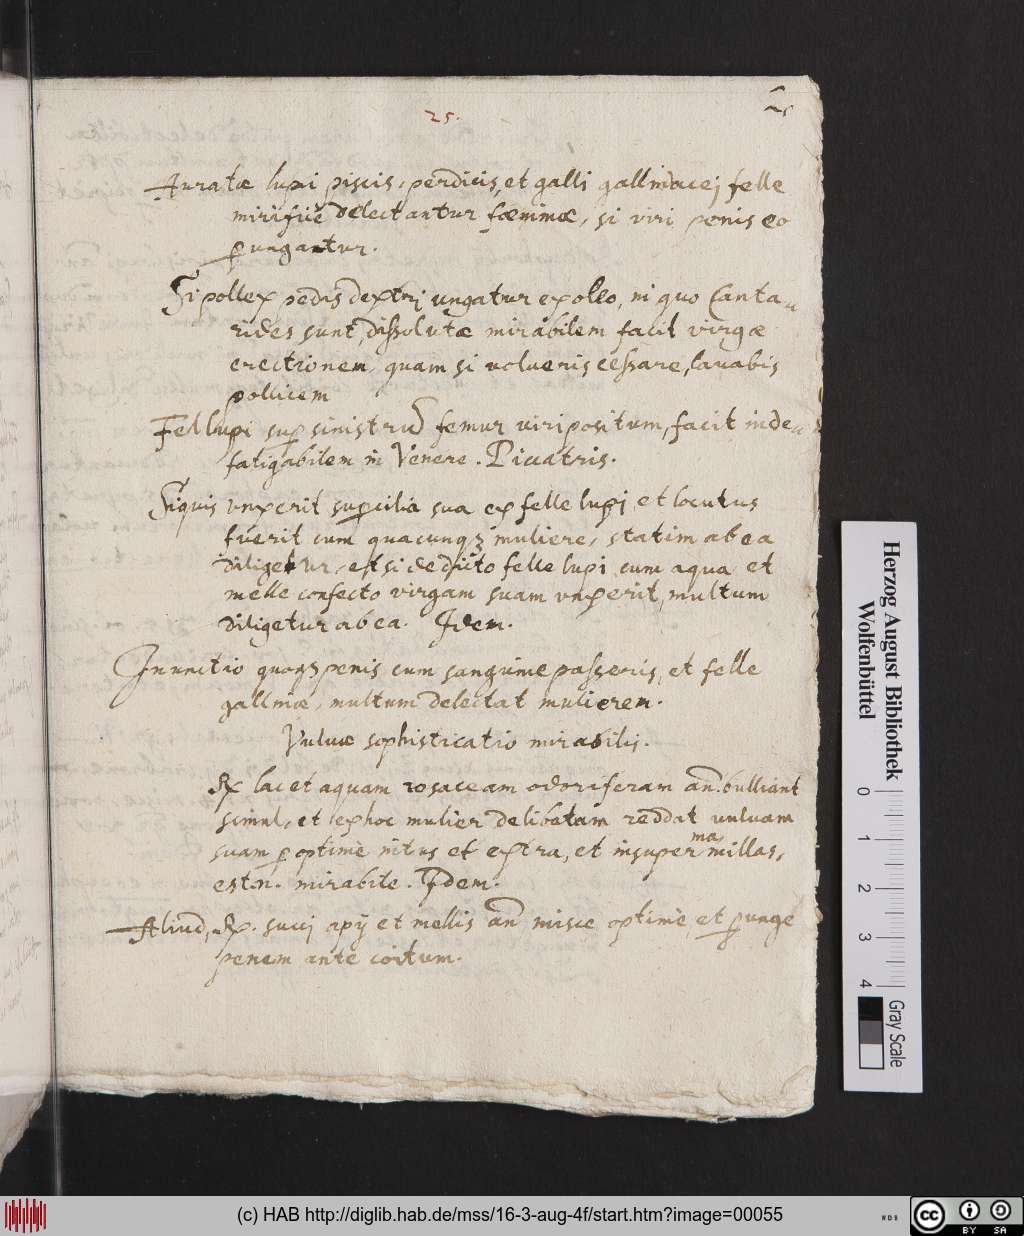 25.
25
Auratæ lupi piscis, perdicis, et galli gallinacej felle
mirificè delectantur fœminæ, si viri penis eo
p̱ungantur.
Si pollex pedis dextrj ungatur ex oleo, in quo Canta-
rides sunt, dissolutæ mirabilem facit virgæ
erectionem, quam si volueris cessare, lavabis
pollicem
Fel lupi sup sinistrũ femur viri positum, facit inde-
fatigabilem in Venere. Picatris.
Siquis vnxerit supcilia sua ex felle lupi, et locutus
fuerit cum quacunqꝫ muliere, statim ab ea
diligetur, et si de dicto felle lupi cum aqua et
melle confecto virgam suam vnxerit, multum
diligetur ab ea. Idem.
Inunctio quoqꝫ penis cum sanguine passeris, et felle
gallinæ, multum delectat mulierem.
Vulvæ sophisticatio mirabilis.
℞ lac et aquam rosaceam odoriferam añ. bulliant
simul, et ex hoc mulier delibatam reddat vulvam
suam p̱optimè intus et extra, et insuper mamillas,
est.n. mirabile. Idem.
Aliud, ℞. succj apij et mellis añ misce optimè, et p̱unge
penem ante coitum.
Herzog August Bibliothek
Wolfenbüttel
0 1 2 3 4
Gray Scale
(c) HAB http://diglib.hab.de/mss/16-3-aug-4f/start.htm?image=00055
WDB
cc
BY SA